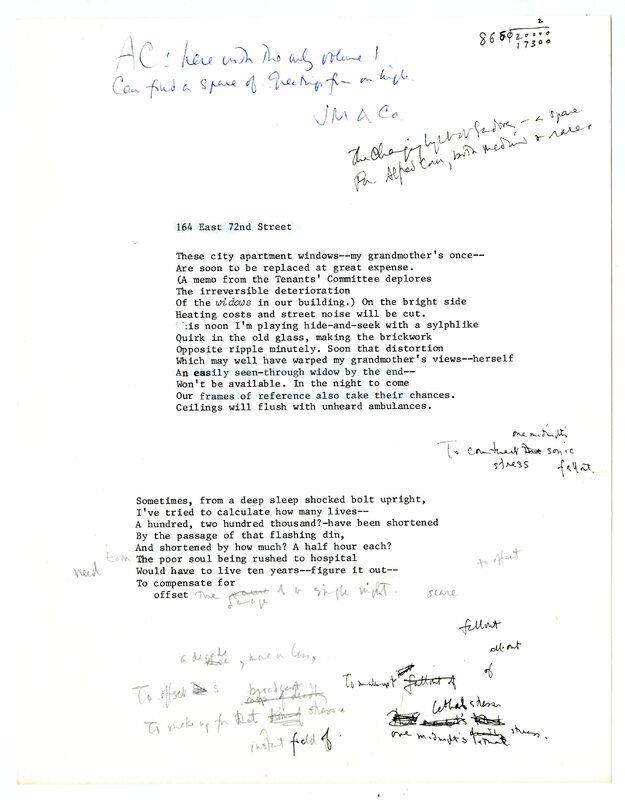 AC: here with the only volume I
Can find a spare of. Greetings from on high.
JM & Co
865 20000
2
17300
The Changing Light at Sandover — a spare
For Alfred Corn, both medium & rare
164 East 72nd Street
These city apartment windows--my grandmother's once--
Are soon to be replaced at great expense.
(A memo from the Tenants' Committee deplores
The irreversible deterioration
Of the widows in our building.) On the bright side
Heating costs and street noise will be cut.
is noon I'm playing hide-and-seek with a sylphlike
Quirk in the old glass, making the brickwork
Opposite ripple minutely. Soon that distortion
Which may well have warped my grandmother's views--herself
An easily seen-through widow by the end--
Won't be available. In the night to come
Our frames of reference also take their chances.
Ceilings will flush with unheard ambulances.
one midnight's
To counteract the sonic
stress fallout.
Sometimes, from a deep sleep shocked bolt upright,
I've tried to calculate how many lives--
A hundred, two hundred thousand?-have been shortened
By the passage of that flashing din,
And shortened by how much? A half hour each?
Each The poor soul being rushed to hospital
need Would have to live ten years--figure it out--
To compensate for
offset the a single night. scare
to offset
fallout
all-out
of
a decade, more or less,
To offset broadcast
To make up for that stress
instant field of
To make up fallout of
lethal stress
one midnight's lethal stress.